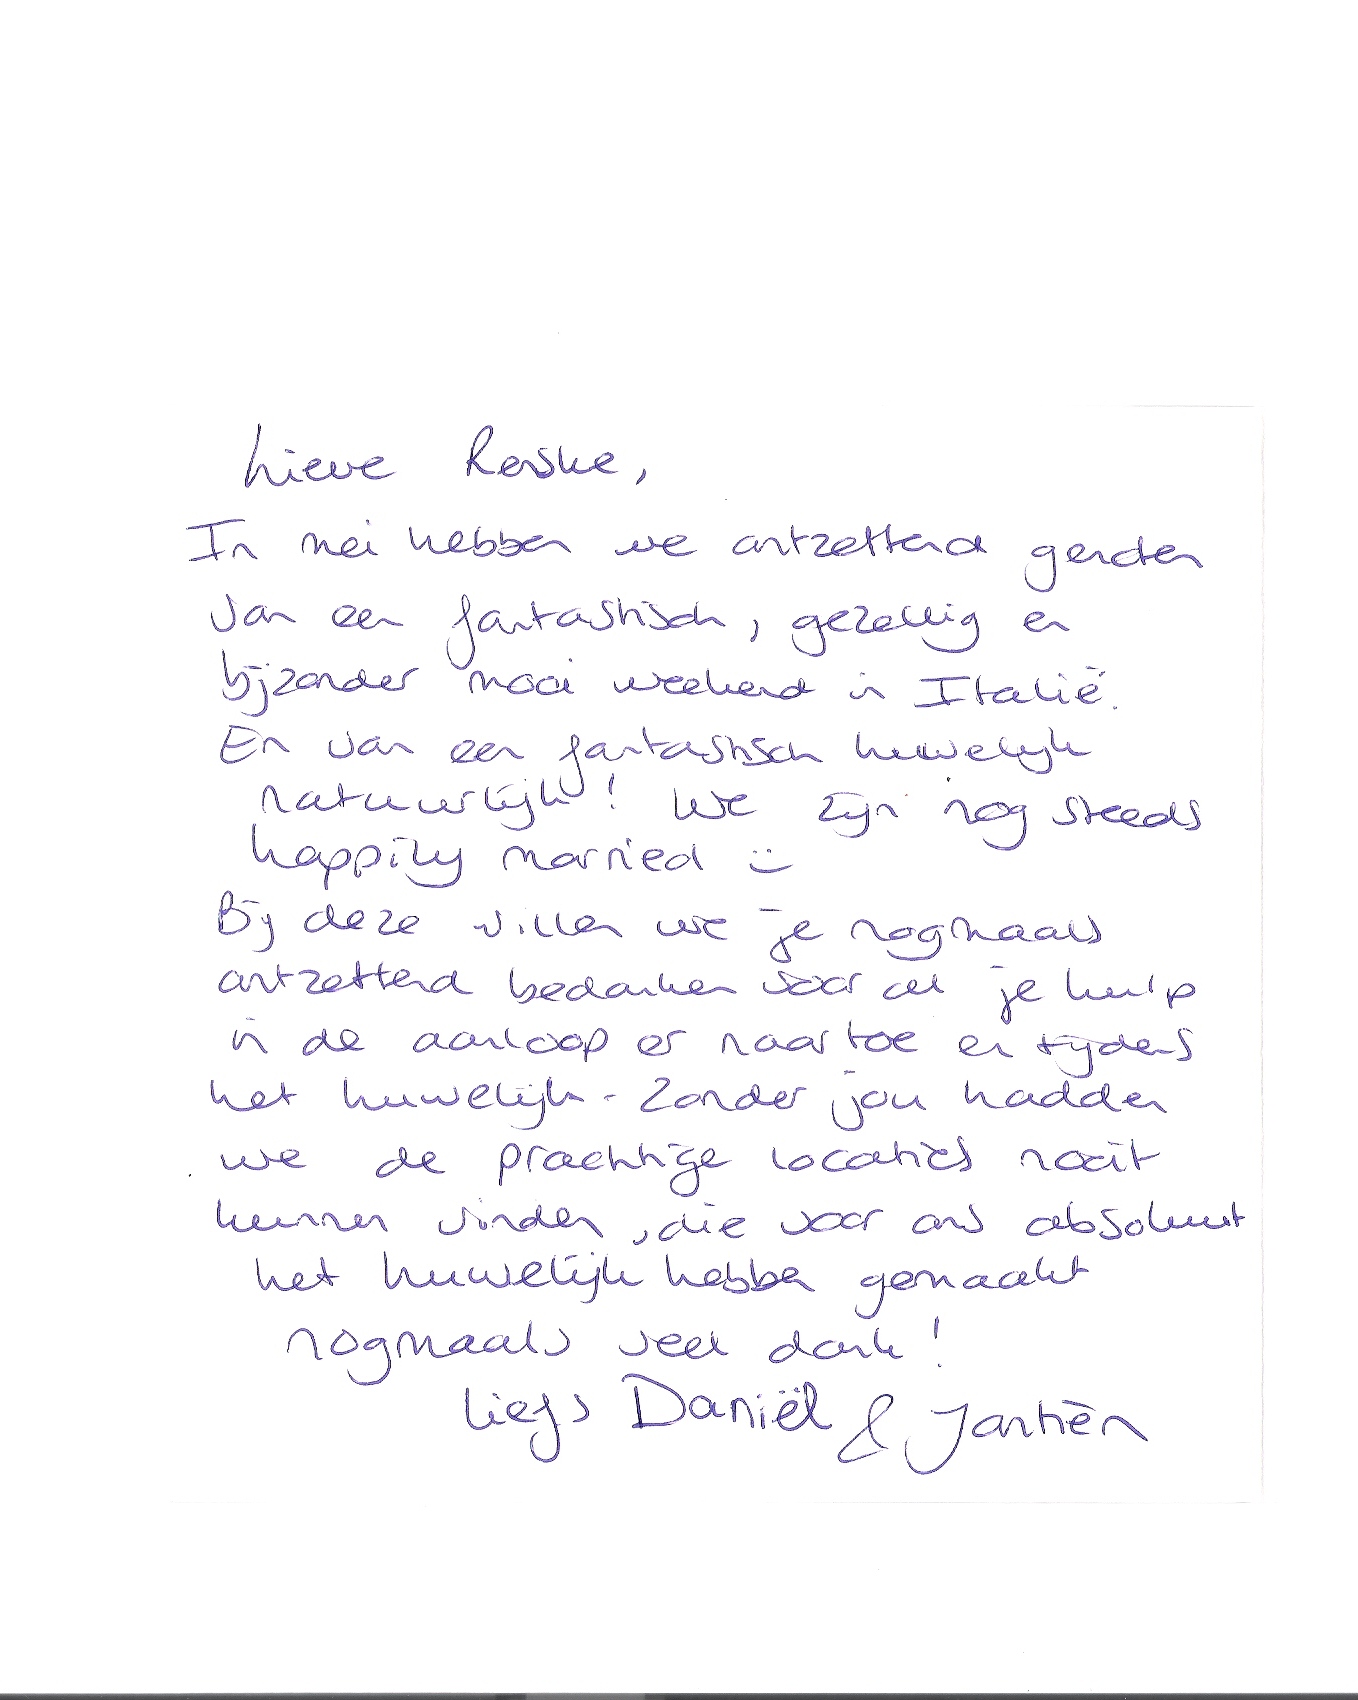 Lieve Renske,
In mei hebben we ontzettend genoten
van een fantastisch, gezellig en
bijzonder mooi weekend in Italië.
En van een fantastisch huwelijk
natuurlijk! We zijn nog steeds
happily married :)
Bij deze willen we je nogmaals
ontzettend bedanken voor al je hulp
in de aanloop er naar toe en tijdens
het huwelijk. Zonder jou hadden
we de prachtige locaties nooit
kunnen vinden, die voor ons absoluut
het huwelijk hebben gemaakt
nogmaals veel dank!
Liefs Daniël & Jantièn